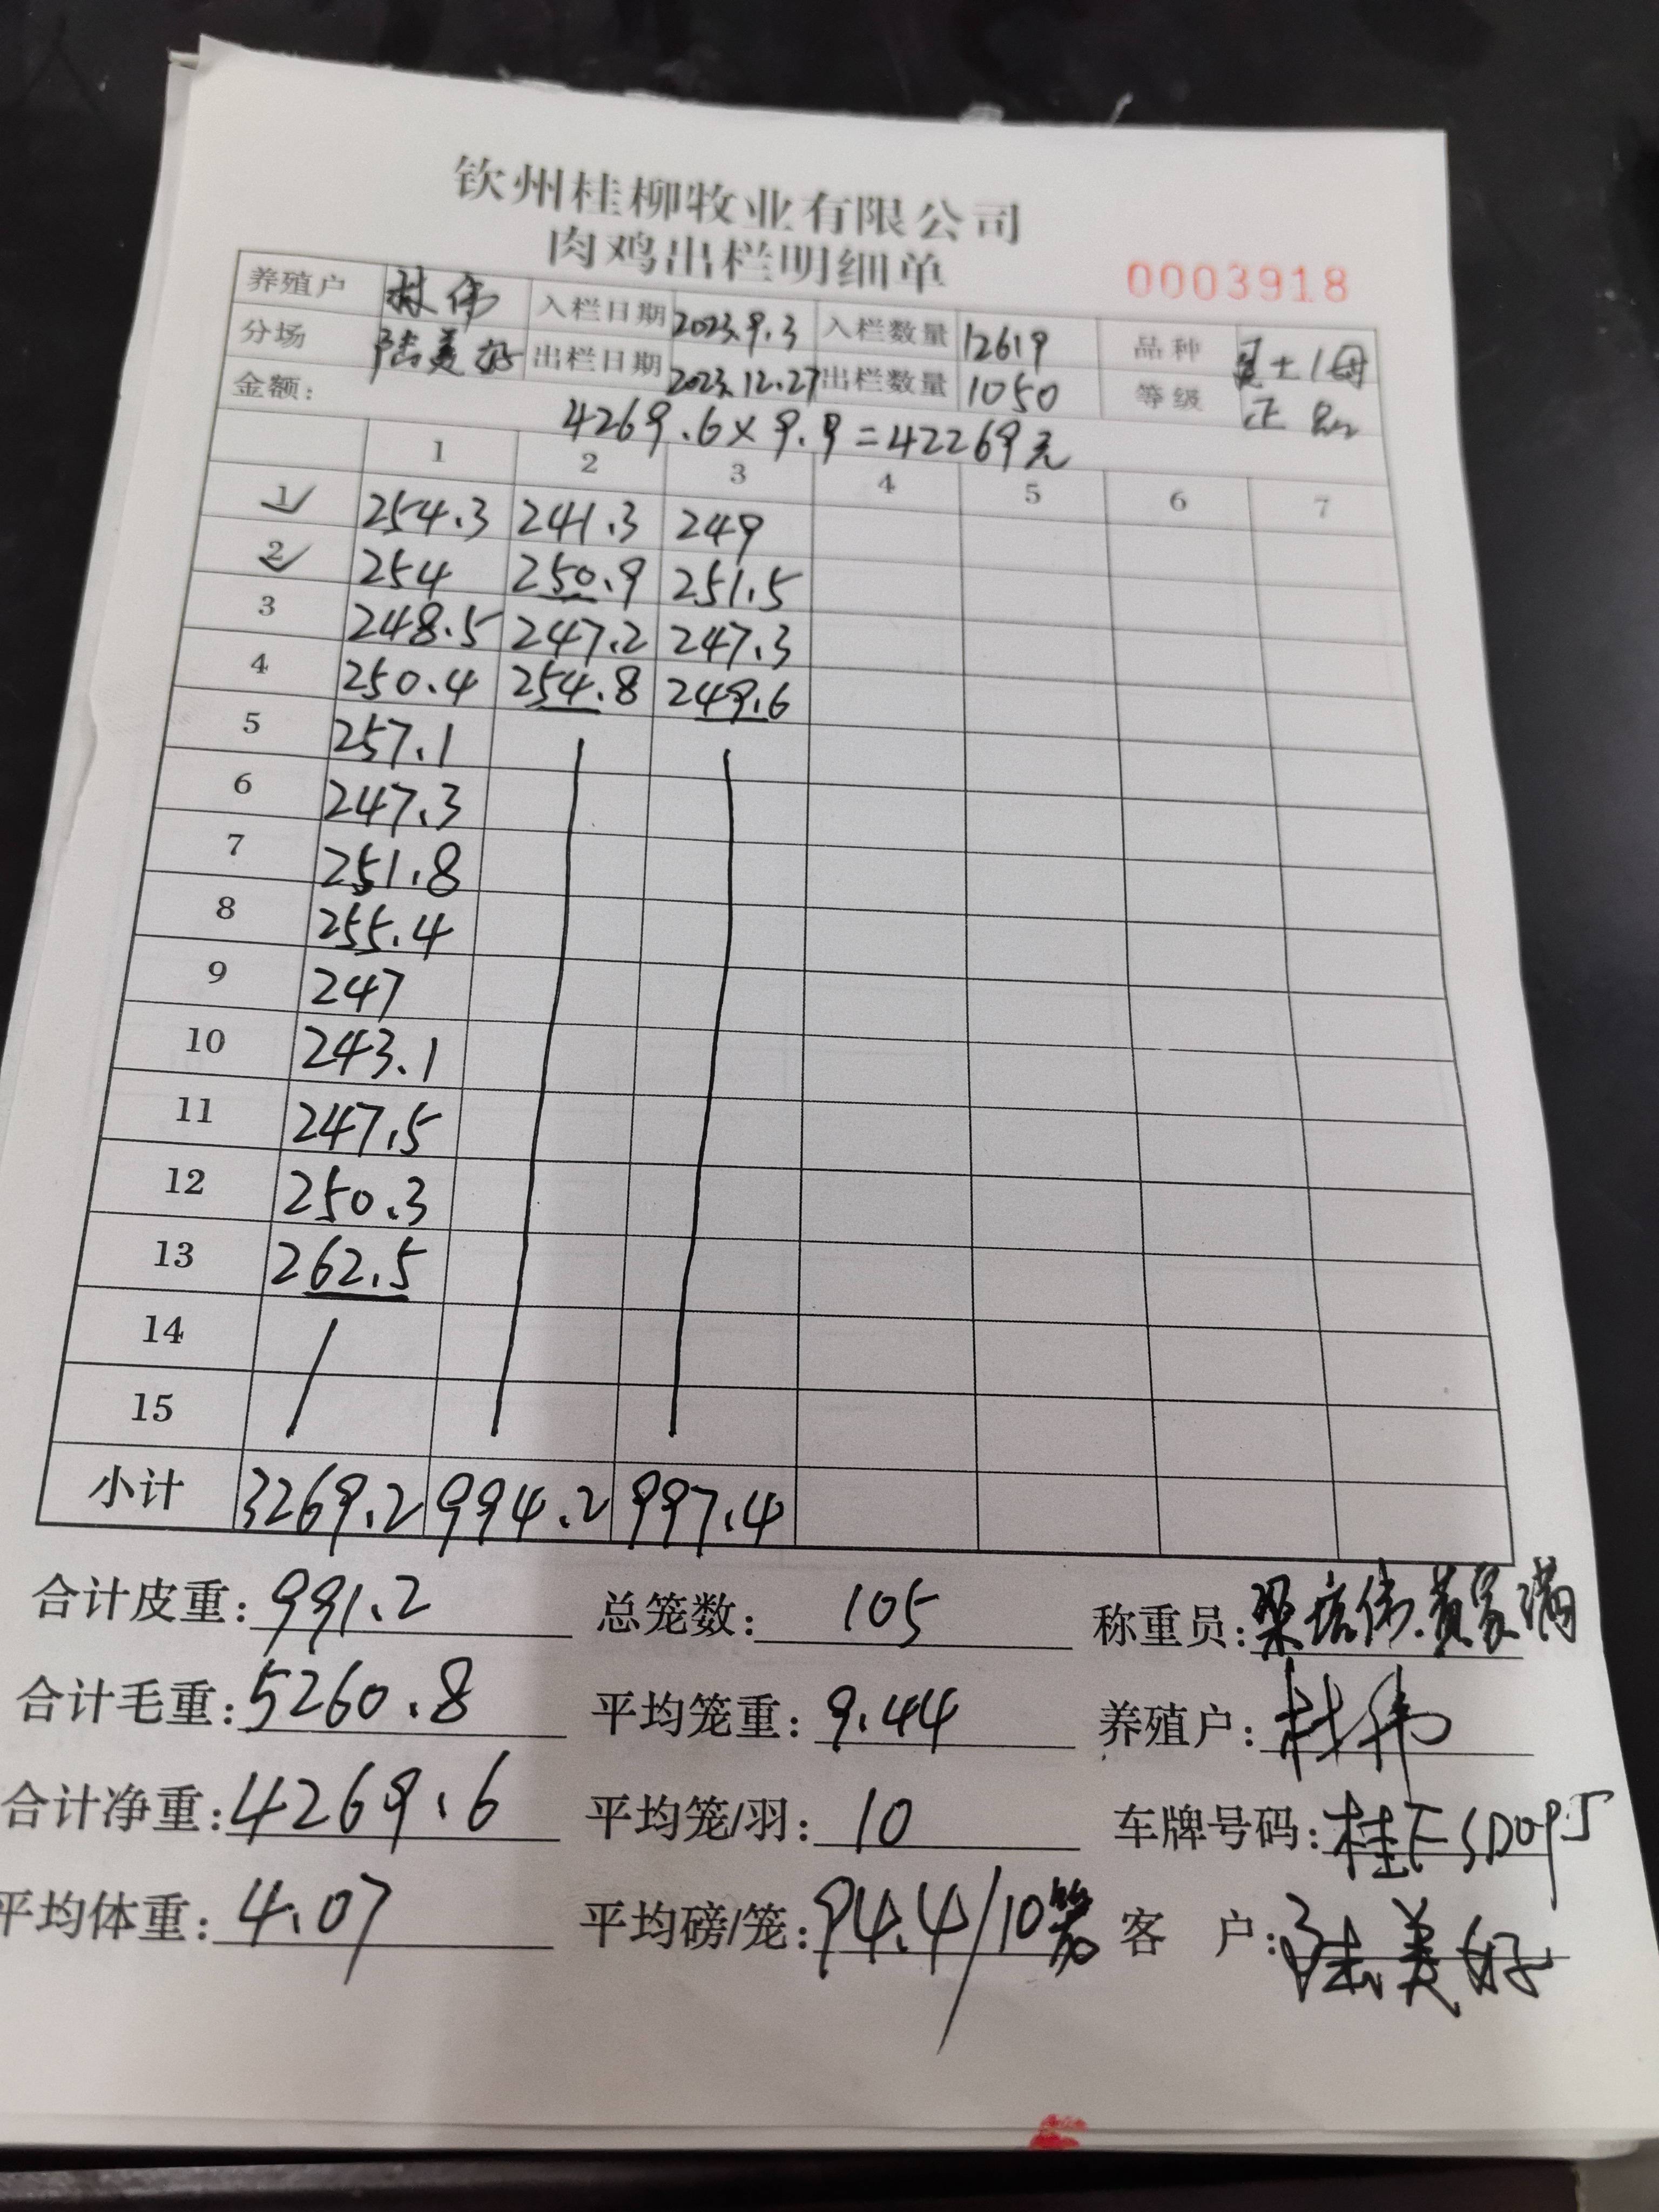 钦州桂柳牧业有限公司
肉鸡出栏明细单
0003918
养殖户 林伟 入栏日期 2023.9.3 入栏数量 12619 品种 土1母
分场 陆美好 出栏日期 2023.12.27 出栏数量 1050 等级 正
金额: 4269.6×9.9=42269元
1 2 3 4 5 6 7
1 254.3 241.3 249
2 254 250.9 251.5
3 248.5 247.2 247.3
4 250.4 254.8 249.6
5 257.1
6 247.3
7 251.8
8 255.4
9 247
10 243.1
11 247.5
12 250.3
13 262.5
14
15
小计 3269.2 994.2 997.4
合计皮重: 991.2 总笼数: 105 称重员: 黄家满
合计毛重: 5260.8 平均笼重: 9.44 养殖户: 林伟
合计净重: 4269.6 平均笼/羽: 10 车牌号码:
平均体重: 4.07 平均磅/笼: 94.4/10笼 客户: 陆美好